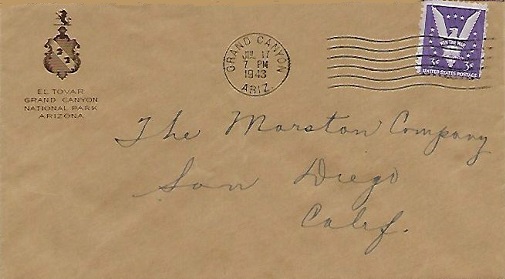 EL TOVAR
GRAND CANYON
NATIONAL PARK
ARIZONA
GRAND CANYON
JUL 17
7 PM
1943
ARIZ.
WIN THE WAR
3¢ 3¢
UNITED STATES POSTAGE
The Marston Company
San Diego
Calif.